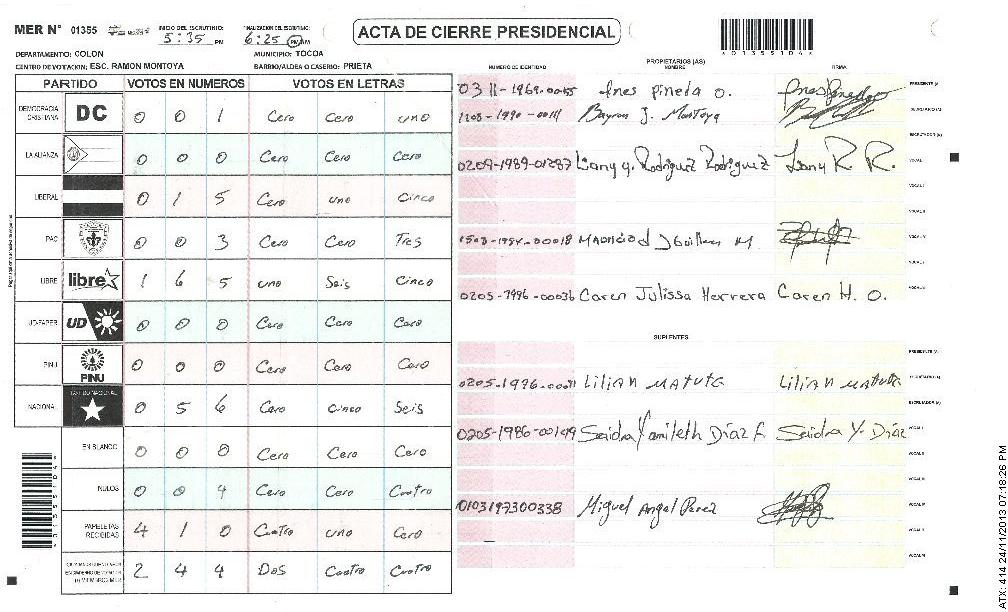 MER N° 01355 INICIO DEL ESCRUTINIO: 5:35 PM FINALIZACION DEL ESCRUTINIO: 6:25 PM AM
ACTA DE CIERRE PRESIDENCIAL
DEPARTAMENTO: COLON MUNICIPIO: TOCOA
CENTRO DE VOTACION: ESC. RAMON MONTOYA BARRIO/ALDEA O CASERIO: PRIETA
PARTIDO VOTOS EN NUMEROS VOTOS EN LETRAS
DEMOCRACIA CRISTIANA DC 0 0 1 Cero Cero uno
LA ALIANZA 0 0 0 Cero Cero Cero
LIBERAL 0 1 5 Cero uno Cinco
PAC 0 0 3 Cero Cero Tres
LIBRE libre 1 6 5 uno Seis Cinco
UD-FAPER UD 0 0 0 Cero Cero Cero
PINU PINU 0 0 0 Cero Cero Cero
NACIONAL PARTIDO NACIONAL 0 5 6 Cero Cinco Seis
EN BLANCO 0 0 0 Cero Cero Cero
NULOS 0 0 4 Cero Cero Cuatro
PAPELETAS RECIBIDAS 4 1 0 Cuatro uno Cero
2 4 4 Dos Cuatro Cuatro
PROPIETARIOS (AS)
NUMERO DE IDENTIDAD NOMBRE FIRMA
Ines Pineda O. PRESIDENTE (A)
Bayron J. Montoya SECRETARIO (A)
ESCRUTADOR (A)
0209-1989-01287 Liany y. Rodriguez Rodriguez Liany R R. VOCAL I
VOCAL II
VOCAL III
VOCAL IV
VOCAL V
Caren Julissa Herrera Caren H. O. VOCAL VI
SUPLENTES
PRESIDENTE (A)
Lilian Matute Lilian Matute SECRETARIO (A)
ESCRUTADOR (A)
0205-1986-00149 Saidra Yamileth Díaz Saidra Y. Díaz VOCAL I
VOCAL II
VOCAL III
0103197300338 Miguel Angel Perez VOCAL IV
VOCAL V
VOCAL VI
ATX: 414 24/11/2013 07:18:26 PM